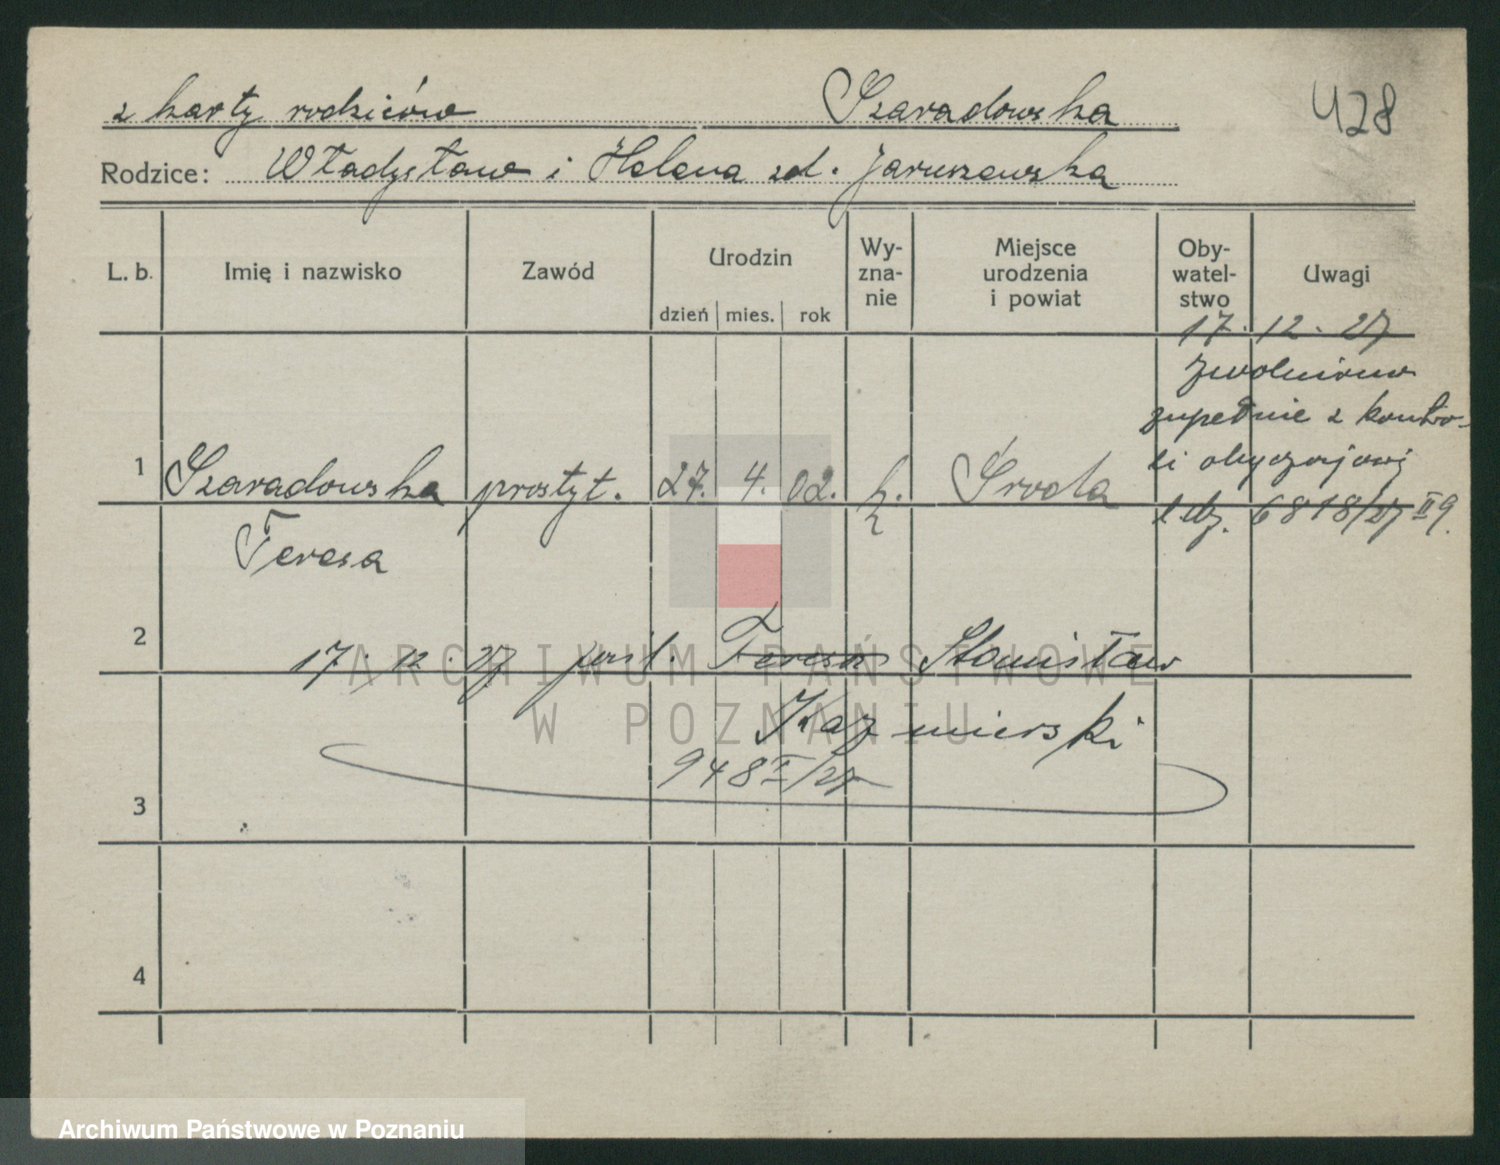 z karty rodziców Szaradowska 428
Rodzice: Władysław i Helena zd. Jaruszewska
L. b. Imię i nazwisko Zawód Urodzin dzień mies. rok Wy-zna-nie Miejsce urodzenia i powiat Oby-watel-stwo Uwagi
17. 12. 27
zwolniono
zupełnie z kontro-
li obyczajowej
1 Szaradowska prostyt. 27. 4. 02. k. Środa
6818/27 II 9.
Teresa
2
17. 12. 27 Teresa Stanisław
Kazmierski
948 I/27
3
4
ARCHIWUM PAŃSTWOWE
W POZNANIU
Archiwum Państwowe w Poznaniu